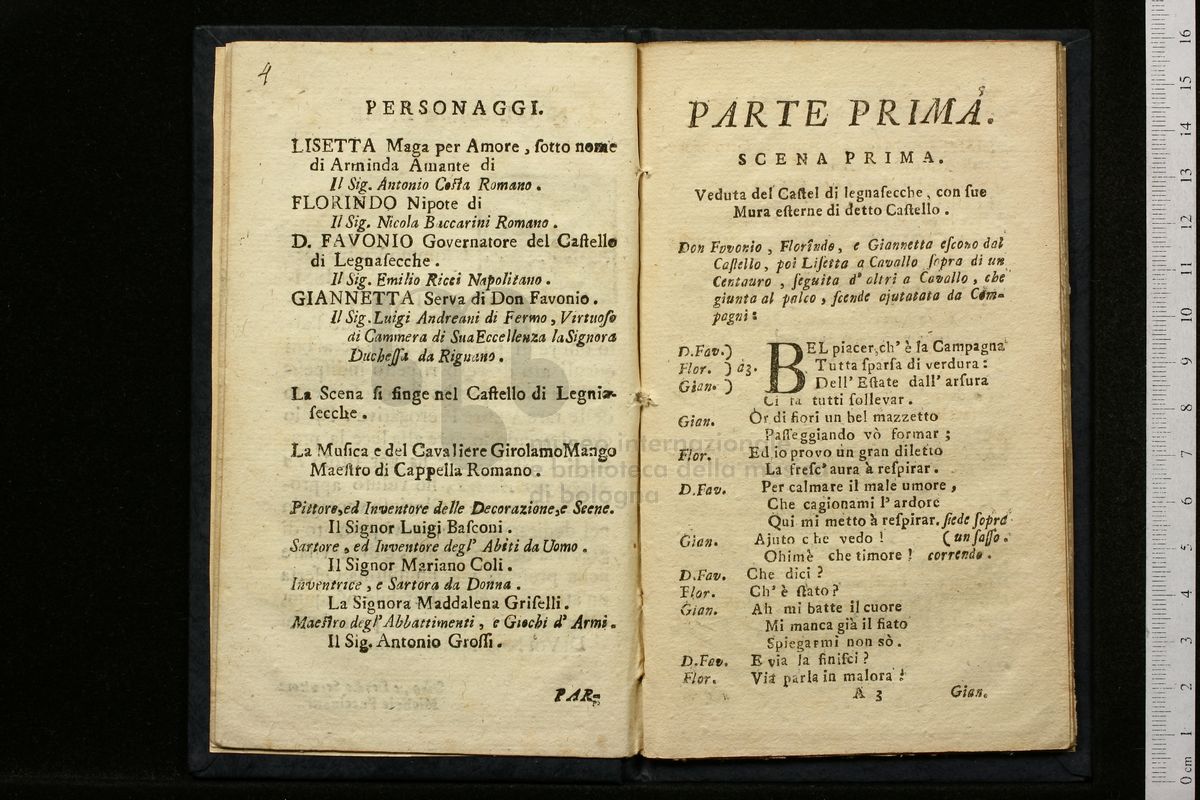 4
PERSONAGGI.
LISETTA Maga per Amore, ſotto nome
di Arminda Amante di
Il Sig. Antonio Coſta Romano.
FLORINDO Nipote di
Il Sig. Nicola Baccarini Romano.
D. FAVONIO Governatore del Caſtello
di Legnaſecche.
Il Sig. Emilio Ricci Napolitano.
GIANNETTA Serva di Don Favonio.
Il Sig. Luigi Andreani di Fermo, Virtuoſo
di Cammera di Sua Eccellenza la Signora
Ducheſſa da Rignano.
La Scena ſi finge nel Caſtello di Legnia-
ſecche.
La Muſica e del Cavaliere Girolamo Mango
Maeſtro di Cappella Romano.
Pittore, ed Inventore delle Decorazione, e Scene.
Il Signor Luigi Baſconi.
Sartore, ed Inventore degl' Abiti da Uomo.
Il Signor Mariano Coli.
Inventrice, e Sartora da Donna.
La Signora Maddalena Griſelli.
Maeſtro degl' Abbattimenti, e Giochi d' Armi.
Il Sig. Antonio Groſſi.
PAR-
5
PARTE PRIMA.
SCENA PRIMA.
Veduta del Caſtel di legnaſecche, con ſue
Mura eſterne di detto Caſtello.
Don Fovonio, Florindo, e Giannetta eſcono dal
Caſtello, poi Liſetta a Cavallo ſopra di un
Centauro, ſeguita d' altri a Cavallo, che
giunta al palco, ſcende ajutatata da Com-
pagni:
D.Fav.) BEL piacer, ch' è la Campagna
Flor. ) à3. Tutta ſparſa di verdura:
Gian. ) Dell' Eſtate dall' arſura
Ci fà tutti ſollevar.
Gian. Or di fiori un bel mazzetto
Paſſeggiando vò formar;
Flor. Ed io provo un gran diletto
La freſc' aura à reſpirar.
D.Fav. Per calmare il male umore,
Che cagionami l' ardore
Qui mi metto à reſpirar. ſiede ſopra
Gian. Ajuto che vedo! (un ſaſſo.
Ohimè che timore! correndo.
D.Fav. Che dici?
Flor. Ch' è ſtato?
Gian. Ah mi batte il cuore
Mi manca già il fiato
Spiegarmi non sò.
D.Fav. E via la finiſci?
Flor. Via parla in malora!
A 3 Gian.
museo internazionale
e biblioteca della musica
di bologna
0 cm 1 2 3 4 5 6 7 8 9 10 11 12 13 14 15 16